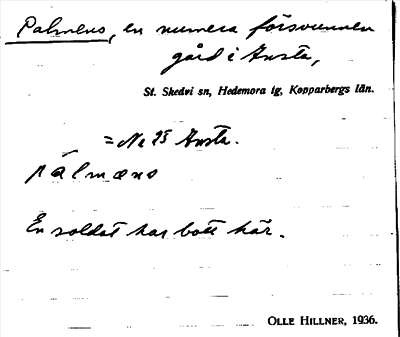 Palmens, en numera försvunnen
gård i Ansta,
St. Skedvi sn, Hedemora tg, Kopparbergs län.
= No 25 Ansta.
pálmæns
En soldat har bott här.
OLLE HILLNER, 1936.